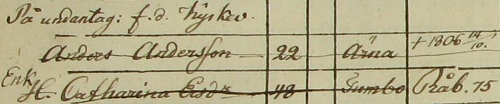 På undantag: f.d. Kyskev.
Anders Andersson 22 Ärna +1806 14/10.
Enk. H. Catharina Ersdr 48 Gumbo Råb. 75